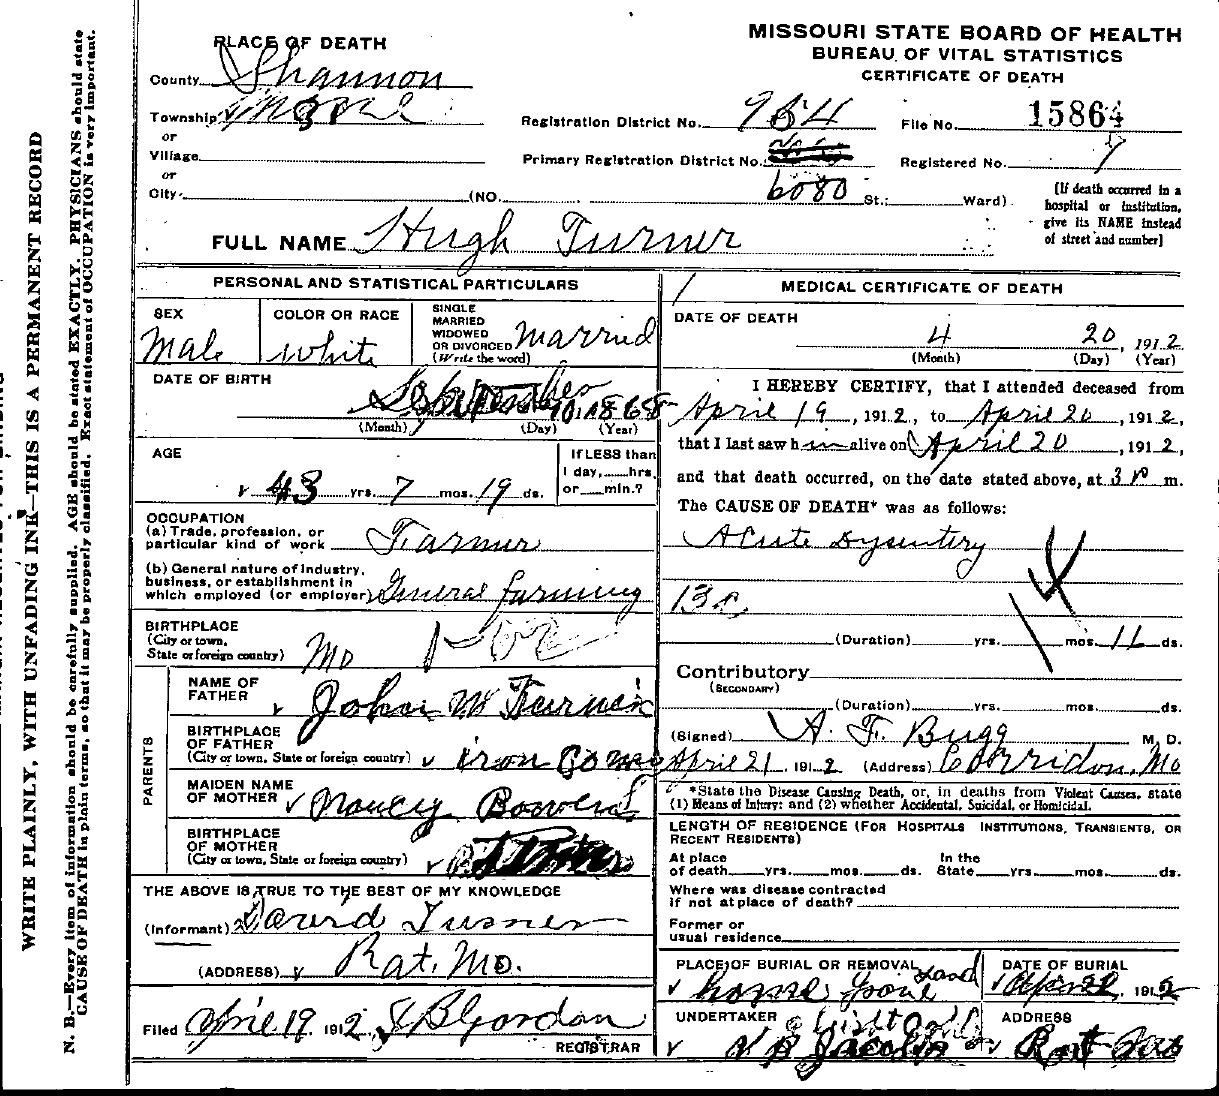 WRITE PLAINLY, WITH UNFADING INK—THIS IS A PERMANENT RECORD
N. B.—Every item of information should be carefully supplied. AGE should be stated EXACTLY. PHYSICIANS should state
CAUSE OF DEATH in plain terms, so that it may be properly classified. Exact statement of OCCUPATION is very important.
MISSOURI STATE BOARD OF HEALTH
BUREAU OF VITAL STATISTICS
CERTIFICATE OF DEATH
PLACE OF DEATH
County Shannon
Township Moore
or
Village
or
City (NO. St.; Ward)
Registration District No. 984 File No. 15864
Primary Registration District No. 6080 Registered No.
[If death occurred in a
hospital or institution,
give its NAME instead
of street and number]
FULL NAME Hugh Turner
PERSONAL AND STATISTICAL PARTICULARS
SEX
Male
COLOR OR RACE
White
SINGLE
MARRIED
WIDOWED
OR DIVORCED
(Write the word)
Married
DATE OF BIRTH
(Month) (Day) (Year)
AGE
43 yrs. 7 mos. 19 ds.
If LESS than
1 day, hrs.
or min.?
OCCUPATION
(a) Trade, profession, or
particular kind of work Farmer
(b) General nature of industry,
business, or establishment in
which employed (or employer) General farming
BIRTHPLACE
(City or town,
State or foreign country) Mo
PARENTS
NAME OF
FATHER
John
BIRTHPLACE
OF FATHER
(City or town, State or foreign country) iron
MAIDEN NAME
OF MOTHER Nancy
BIRTHPLACE
OF MOTHER
(City or town, State or foreign country)
THE ABOVE IS TRUE TO THE BEST OF MY KNOWLEDGE
(Informant) David Turner
(ADDRESS) Rat, Mo.
Filed April 19, 1912, Gordon
REGISTRAR
MEDICAL CERTIFICATE OF DEATH
DATE OF DEATH
4 20, 1912
(Month) (Day) (Year)
I HEREBY CERTIFY, that I attended deceased from
April 19, 1912, to April 20, 1912,
that I last saw him alive on April 20, 1912,
and that death occurred, on the date stated above, at 3 P m.
The CAUSE OF DEATH* was as follows:
Acute Dysentery
(Duration) yrs. mos. 11 ds.
Contributory
(SECONDARY)
(Duration) yrs. mos. ds.
(Signed) A. F. Bugg M. D.
April 21, 1912 (Address) Corridon, Mo
*State the Disease Causing Death, or, in deaths from Violent Causes, state
(1) Means of Injury; and (2) whether Accidental, Suicidal, or Homicidal.
LENGTH OF RESIDENCE (FOR HOSPITALS, INSTITUTIONS, TRANSIENTS, OR
RECENT RESIDENTS)
At place
of death yrs. mos. ds.
In the
State yrs. mos. ds.
Where was disease contracted
if not at place of death?
Former or
usual residence
PLACE OF BURIAL OR REMOVAL
DATE OF BURIAL
1912
UNDERTAKER
ADDRESS